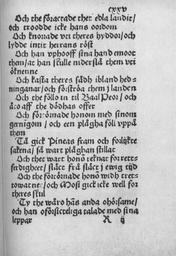 cxxv
Och the foractade thet edla landit/
och troodde icke hans oordom
Och knorrade vti theres hyddor/och
lydde intet herrans röst
Och han vphooff sina hand emoot
them/at han skulle nidersla them vti
öknenne
Och kasta theres sädh ibland hed-
ninganar/ och förströ them j landen
Och the föllo in til Baal Peor/ och
åto aff the dödhas offer
Och förtörnade honom med sinom
gerningom/ och een plågha föll vppå
them
Tå gick Pineas fram och förlikte
sakena/ så wart plåghan stillat
Och thet wart honom reknat for retts
ferdigheet/ släct frå släct j ewig tijd
Och the förtörnade honom widh trette
wattne/ och Mosi gick icke well for
theres skul
Ty the wåro hans anda ohörsame/
och han oförsicteliga talade med sina
leppar
R ij